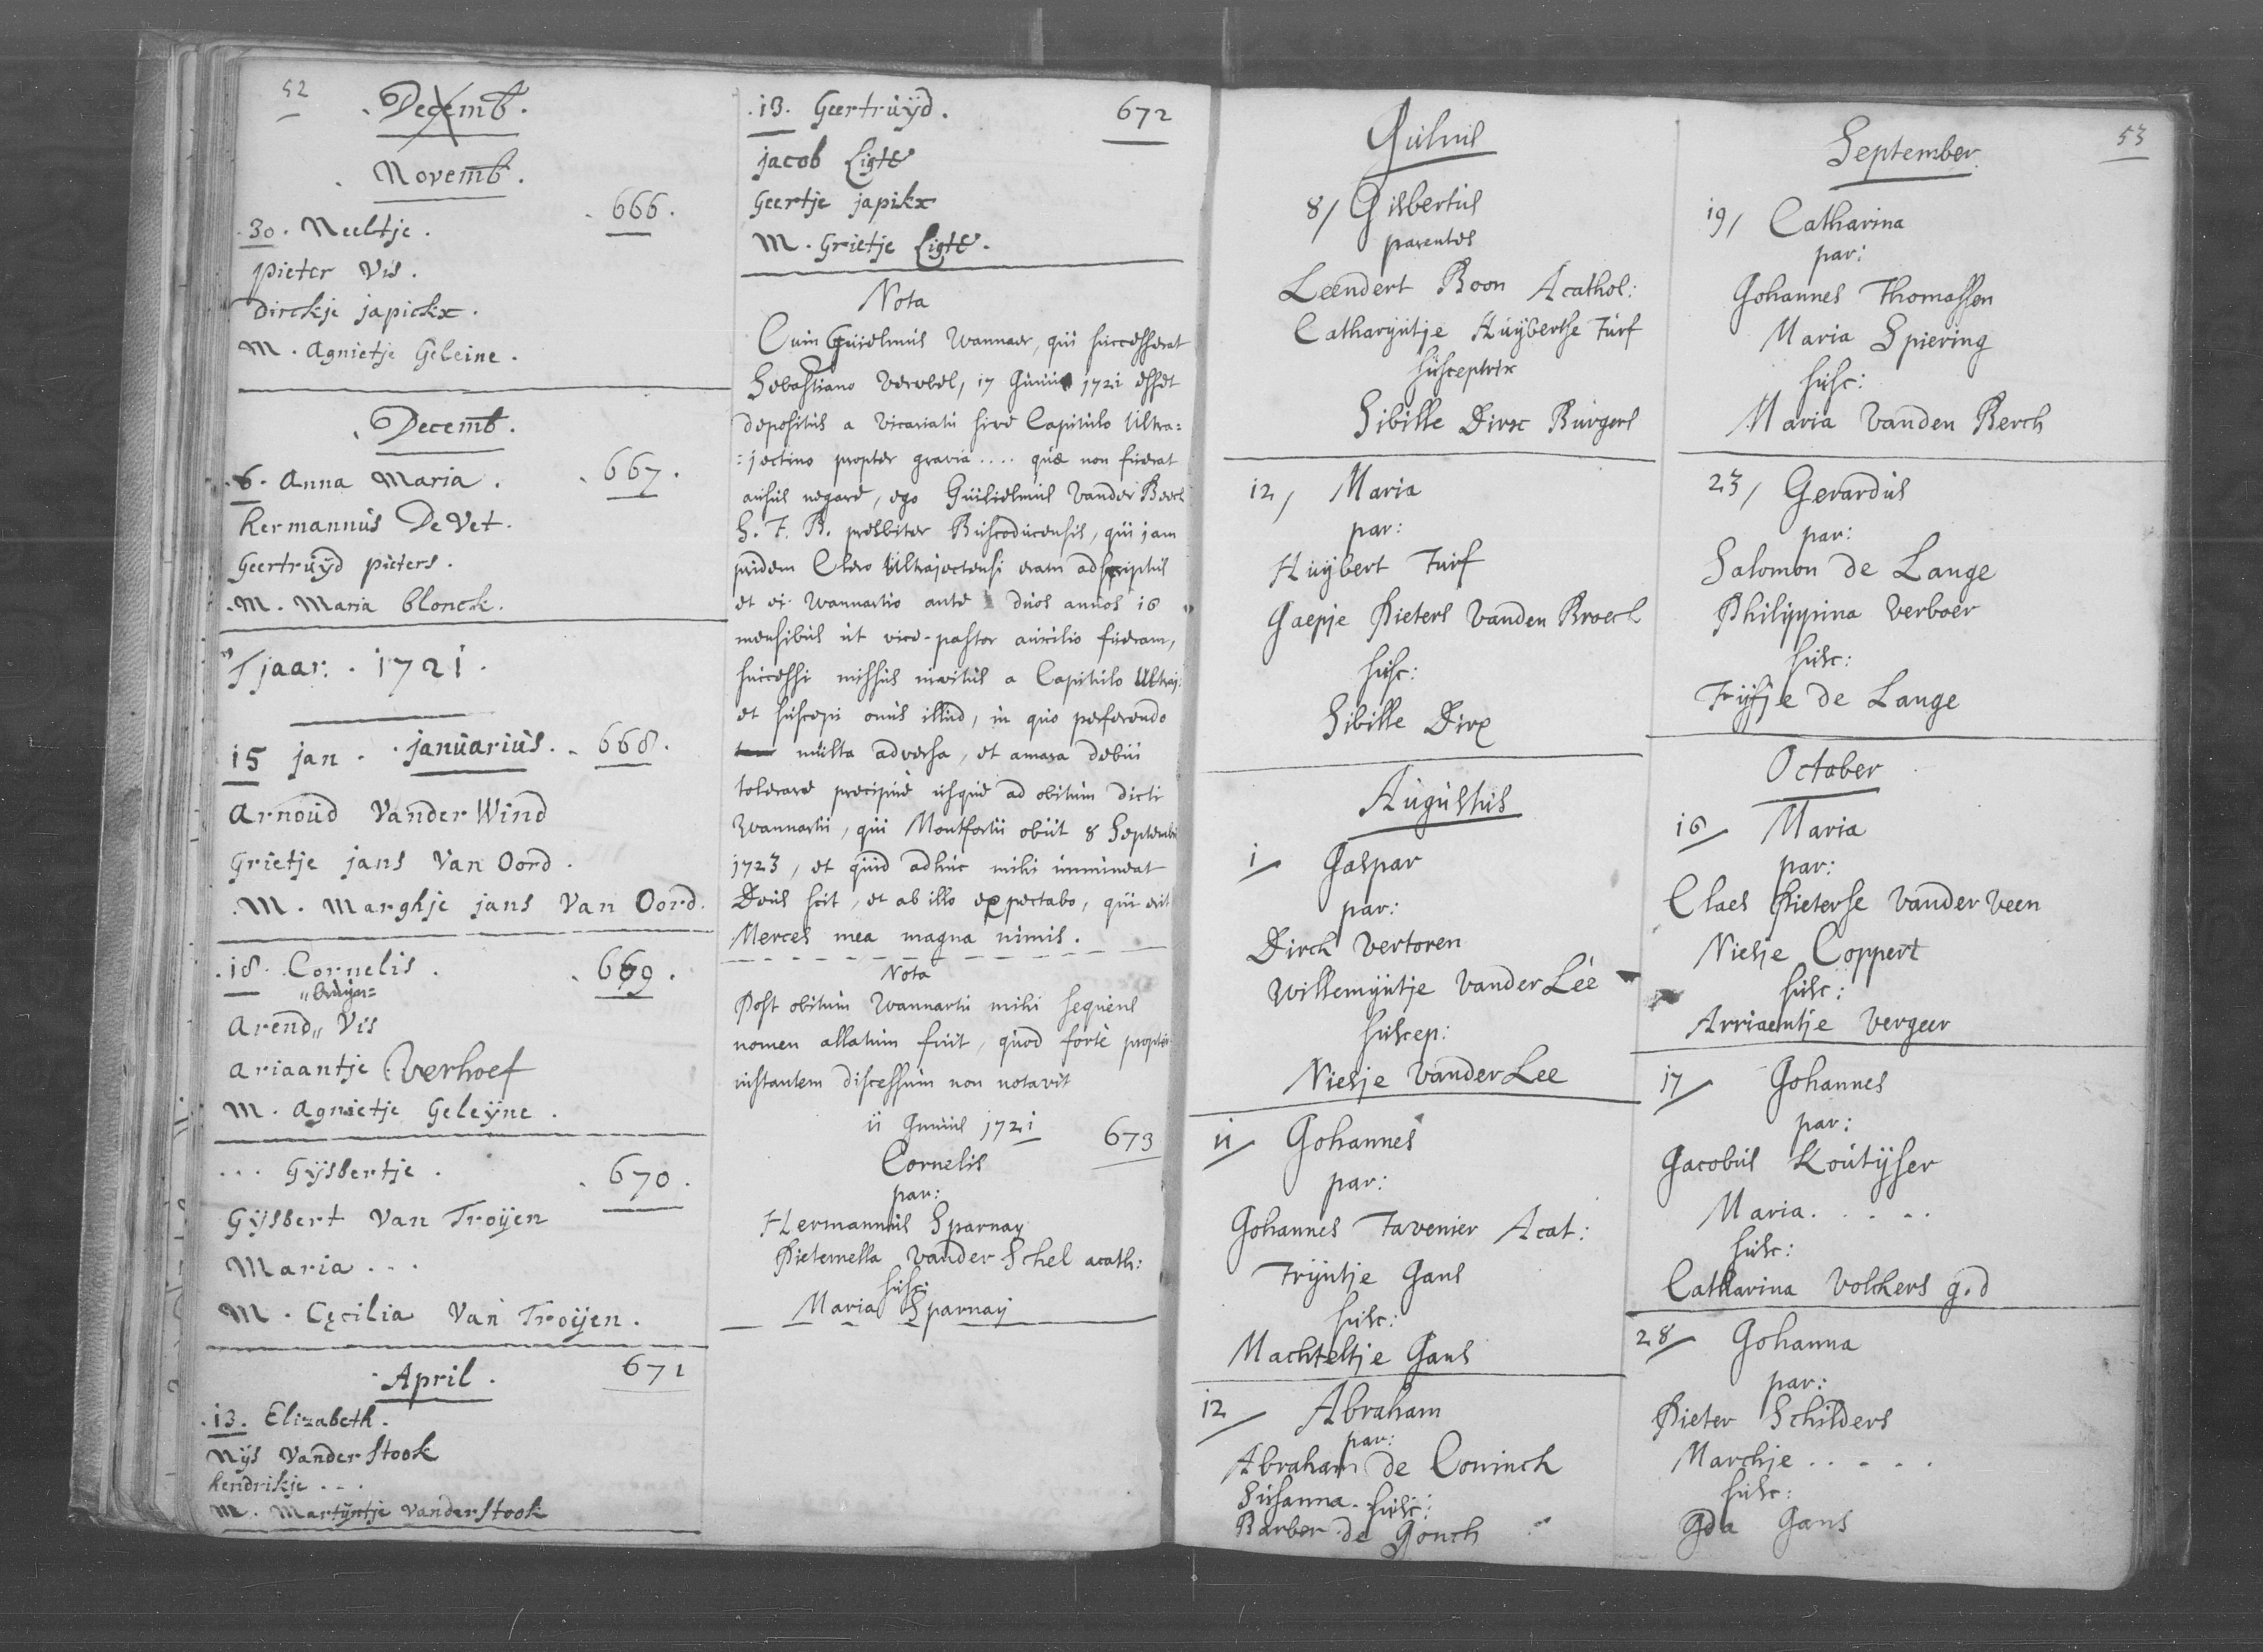 52
Decemb.
Novemb.
30. Neeltje. 666.
Pieter Vis.
Dirckje japickx.
M. Agnietje Geleine.
Decemb.
6. Anna Maria. 667.
Hermannus De Vet.
Geertruÿd pieters.
M. Maria blonck.
'T jaar. 1721.
15 jan. januarius. 668.
Arnoud Vander Wind
Grietje jans Van Oord.
M. Marghje jans Van Oord.
18. Cornelis. 669.
"bruÿn=
Arend" Vis
Ariaantje Verhoef
M. Agnietje Geleÿne.
... Gÿsbertje. 670.
Gÿsbert Van Troÿen
Maria ...
M. Cęcilia Van Troÿen.
April. 671
13. Elizabeth.
Nÿs Vander Stook
hendrikje ...
M. Martÿntje Vander Stook
13. Geertruÿd. 672
jacob Ligte
Geertje japikx
M. Grietje Ligte.
Nota
Cum Guielmus Wannaer, qui successerat
Sebastiano Verebel, 17 Junii 1721 esset
depositus a vicariatu sive Capitulo Ultra=
=jectino propter gravia .... quæ non fuerat
ausus negare, ego Guilielmus Vander Beeck
S. T. B. presbiter Buscoducensis, qui jam
pridem Clero Ultrajectensi eram adscriptus
et ei Wannartio ante duos annos 16
mensibus ut vice-pastor auxilio fueram,
successi missus invitus a Capitulo Ultraj:
et suscepi onus illud, in quo perferendo
multa adversa, et amara debui
tolerare precipue usque ad obitum dicti
Wannartii, qui Montfortii obiit 8 Septembr
1723, et quid adhuc mihi immineat
Deus scit, et ab illo expectabo, qui erit
Merces mea magna nimis.
Nota
Post obitum Wannartii mihi sequens
nomen allatum fuit, quod forte propter
instantem discessum non notavit
11 Junius 1721
Cornelis 673
par:
Hermannus Sparnay
Pieternella Vander Schel acath:
susc:
Maria Sparnaÿ
Julius
8/ Gisbertus
parentes
Leendert Boon Acathol:
Catharÿntje Huÿbertse Turf
susceptrix
Sibille Dirx Burgers
12/ Maria
par:
Huÿbert Turf
Jaepje Pieters Vanden Broeck
susc:
Sibille Dirx
Augustus
1/ Jaspar
par:
Dirck Vertoren
Willemÿntje Vander Lee
suscep:
Niesje Vander Lee
11/ Johannes
par:
Johannes Tavenier Acat:
Trÿntje Jans
susc:
Machteltje Jans
12/ Abraham
par:
Abraham de Coninck
Susanna. susc:
Barber de Jonch
53
September
19/ Catharina
par:
Johannes Thomassen
Maria Spiering
susc:
Maria Vanden Berch
23/ Gerardus
par:
Salomon de Lange
Philippina Verboer
susc:
Trÿtje de Lange
October
16/ Maria
par:
Claes Pieterse Vander Veen
Niesje Coppert
susc:
Arriaentje Vergeer
17/ Johannes
par:
Jacobus Koutÿser
Maria .....
susc:
Catharina Volckers g.d
28/ Johanna
par:
Pieter Schilders
Marchje .....
susc:
Ida Jans